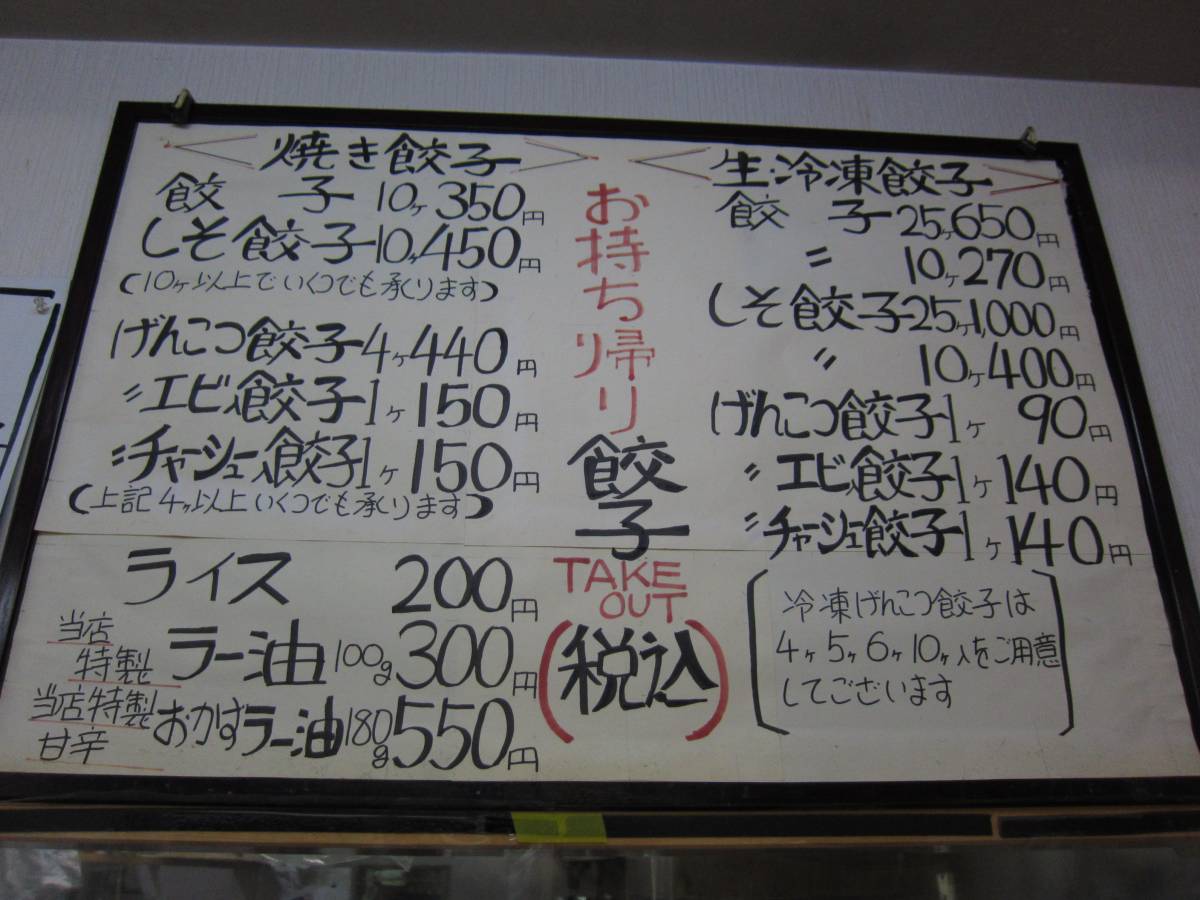 焼き餃子
餃子 10ヶ 350円
しそ餃子 10ヶ 450円
(10ヶ以上でいくつでも承ります)
げんこつ餃子 4ヶ 440円
〃エビ入餃子 1ヶ 150円
〃チャーシュー入餃子 1ヶ 150円
(上記4ヶ以上いくつでも承ります)
ライス 200円
当店特製 ラー油 100g 300円
当店特製甘辛 おかずラー油 180g 550円
お持ち帰り
餃子
TAKE
OUT
(税込)
生・冷凍餃子
餃子 25ヶ 650円
〃 10ヶ 270円
しそ餃子 25ヶ 1,000円
〃 10ヶ 400円
げんこつ餃子 1ヶ 90円
〃エビ入餃子 1ヶ 140円
〃チャーシュー餃子 1ヶ 140円
冷凍げんこつ餃子は
4ヶ5ヶ6ヶ10ヶ入をご用意
してございます